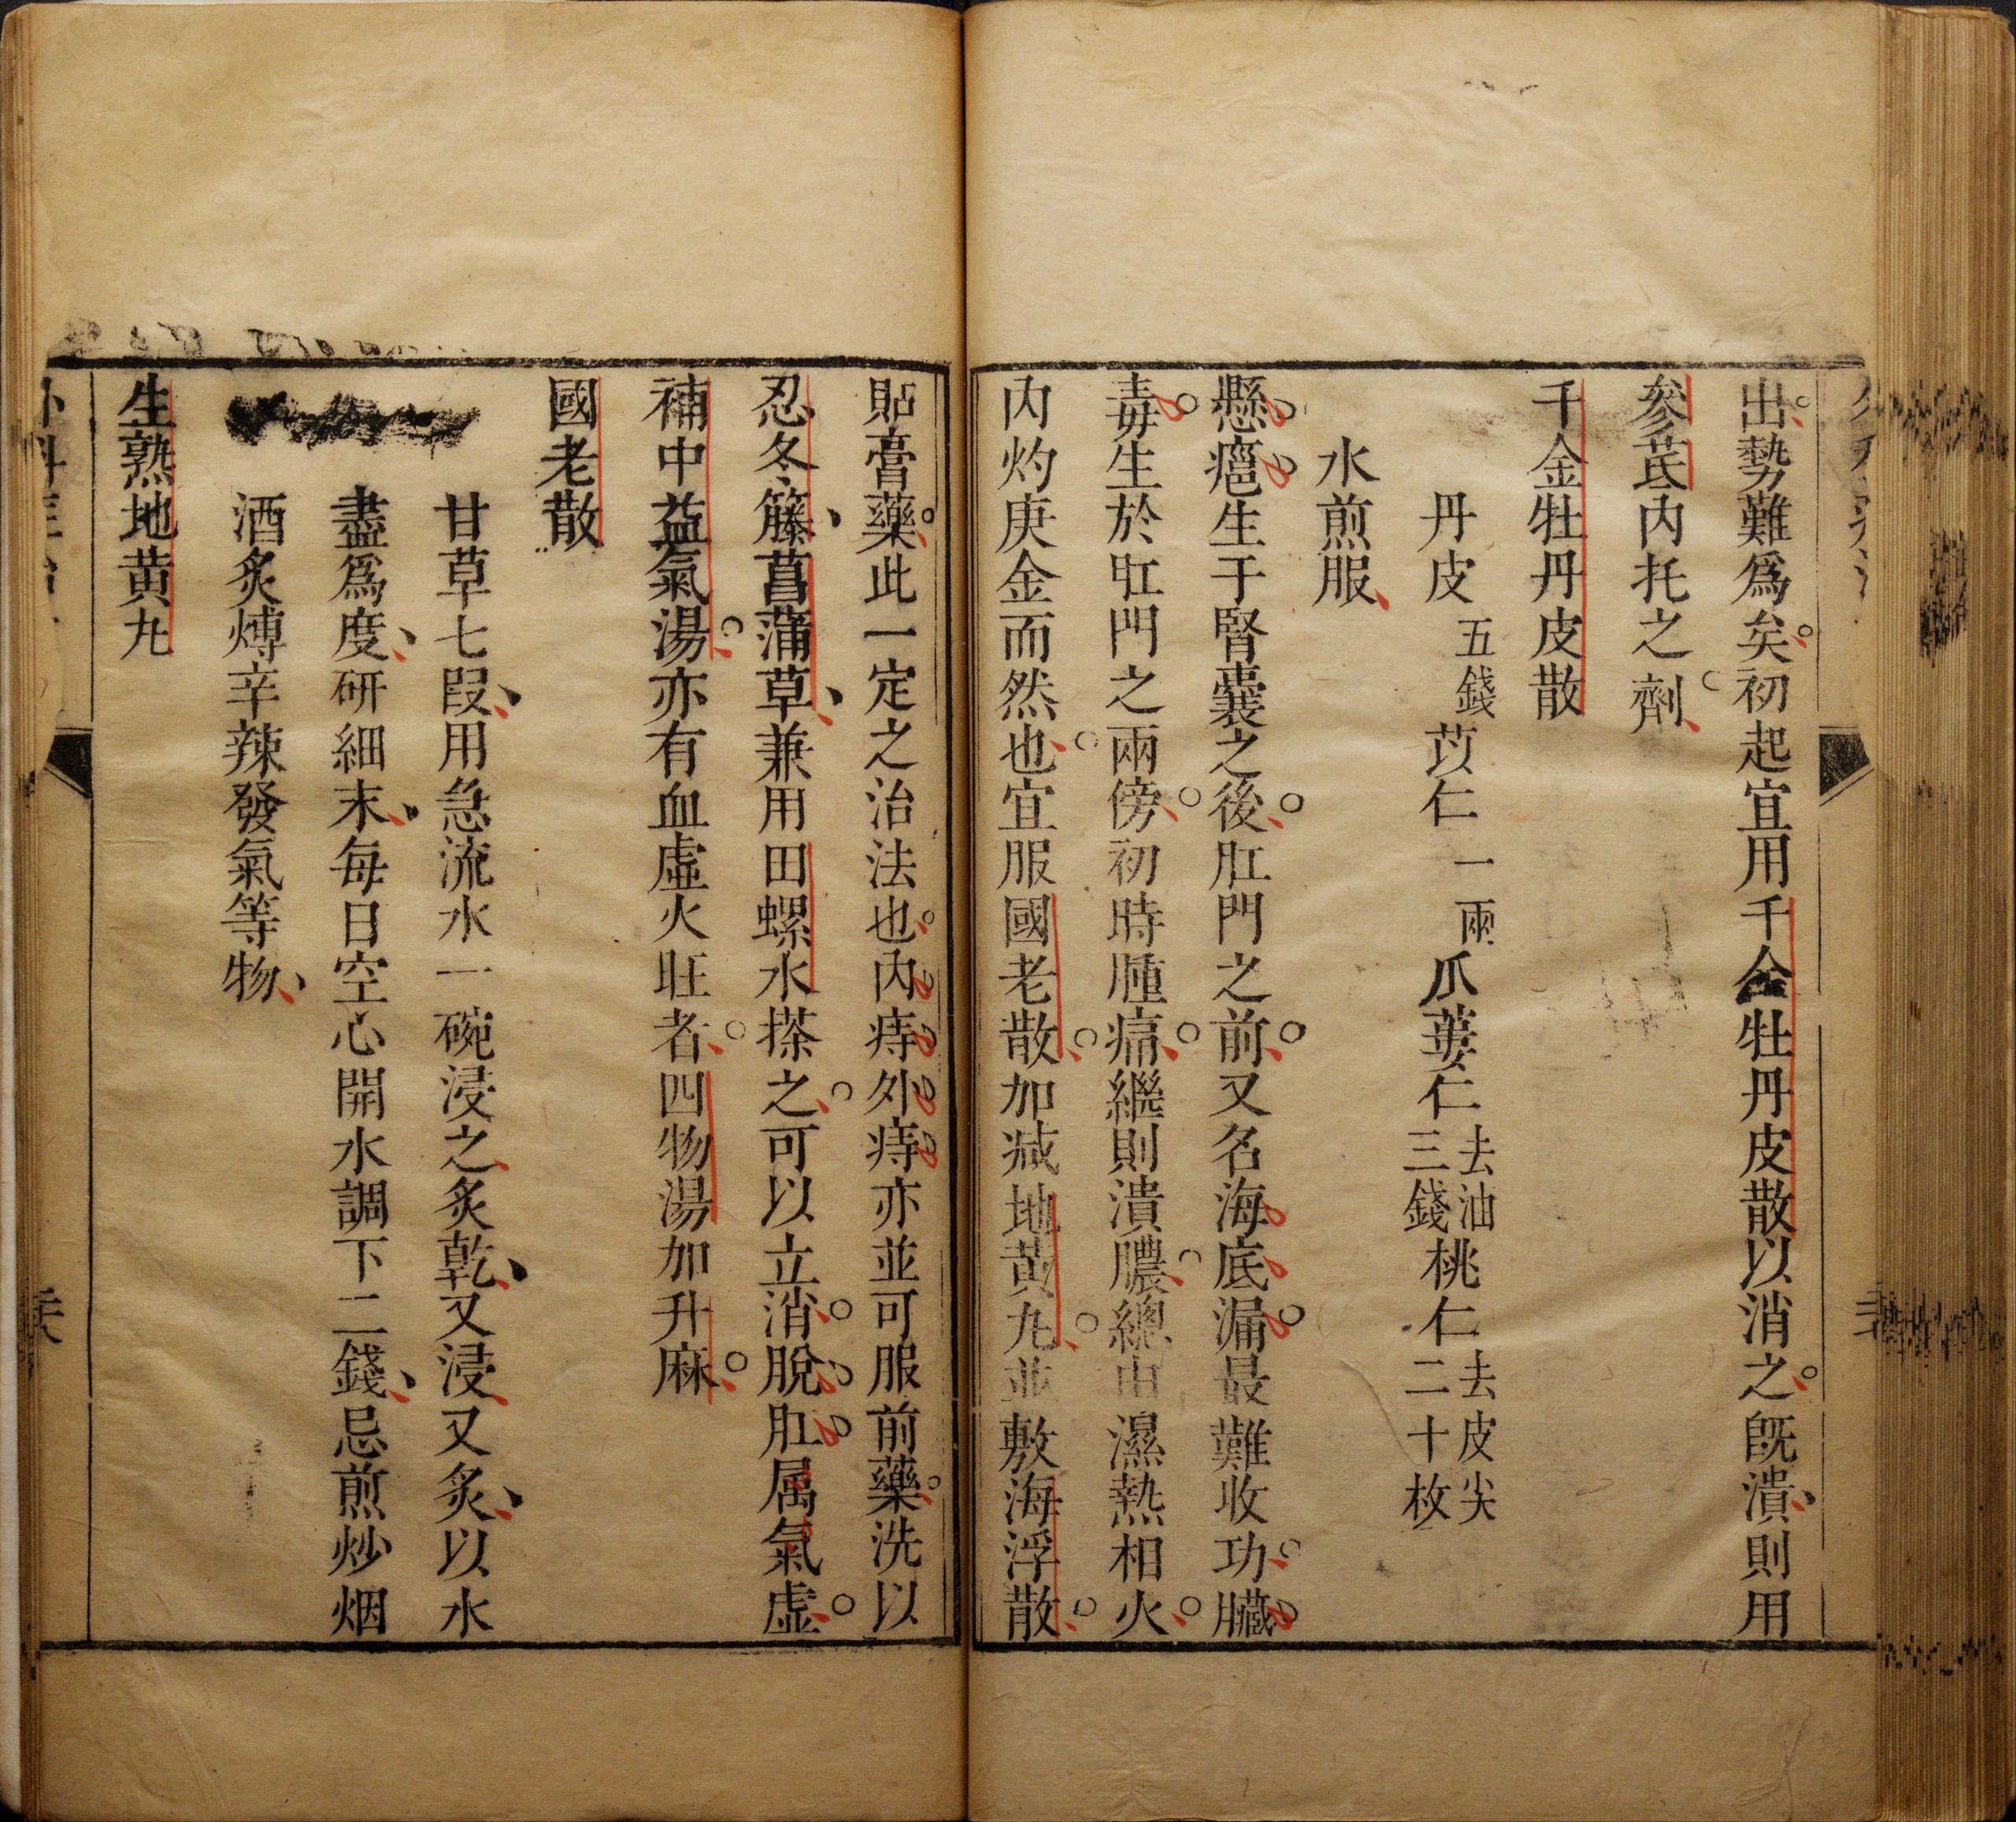 出勢難爲矣初起宜用千金牡丹皮散以消之旣潰則用
參芪內托之劑
千金牡丹皮散
丹皮五錢 苡仁一兩 爪蔞仁去油三錢 桃仁去皮尖二十枚
水煎服
懸癰生于腎囊之後肛門之前又名海底漏最難收功臟
毒生於肛門之兩傍初時腫痛繼則潰膿總由濕熱相火
內灼庚金而然也宜服國老散加減地黃丸並敷海浮散
貼膏藥此一定之治法也內痔外痔亦並可服前藥洗以
忍冬籐菖蒲草兼用田螺水搽之可以立消脫肛属氣虛
補中益氣湯亦有血虛火旺者四物湯加升麻
國老散
甘草七段用急流水一碗浸之炙乾又浸又炙以水
盡爲度研細末每日空心開水調下二錢忌煎炒烟
酒炙煿辛辣發氣等物
生熟地黃丸